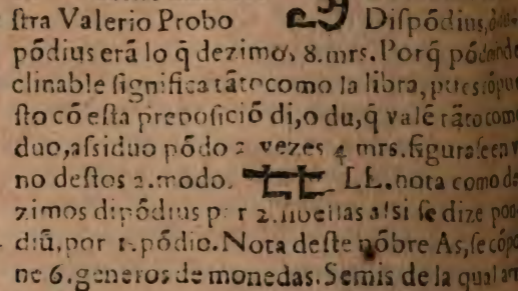 ſtra Valerio Probo Diſpõdius,
põdius erã lo q̃ dezimos, 8.mrs. Porq̃
clinable ſignifica tãto como la libra, pues
ſto cõ eſta prepoſiciõ di, o du, q̃ valẽ tãto com
duo, aſsi duo põdo 2 vezes 4 mrs. figuraſe en v
no deſtos 2.modo. LL. nota como de
zimos dipõdius por 2. aſsi ſe dize pon
diũ, por 1.põdio. Nota deſte nõbre As, ſe cõpo
ne 6.generos de monedas. Semis de la qual an